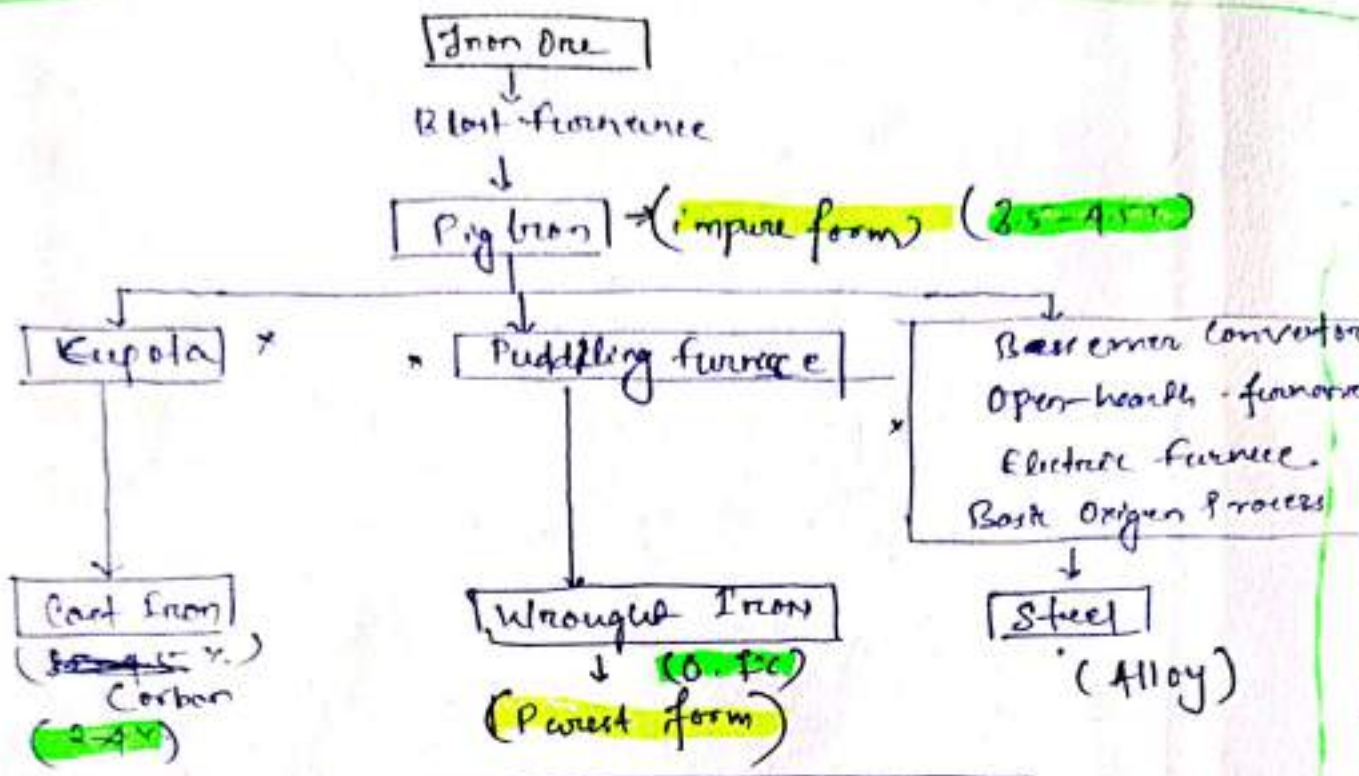 Iron Ore
Blast furnance
Pig Iron → (impure form) (3.5-4.5%)
Kupola
Puddling furnace
Bassemer Convertor
Open-hearth - furnance
Electric furnece.
Basic Oxigen Process
Cast Iron
Carbon
(2-4%)
Wrought Iron
(Purest form)
Steel
(Alloy)